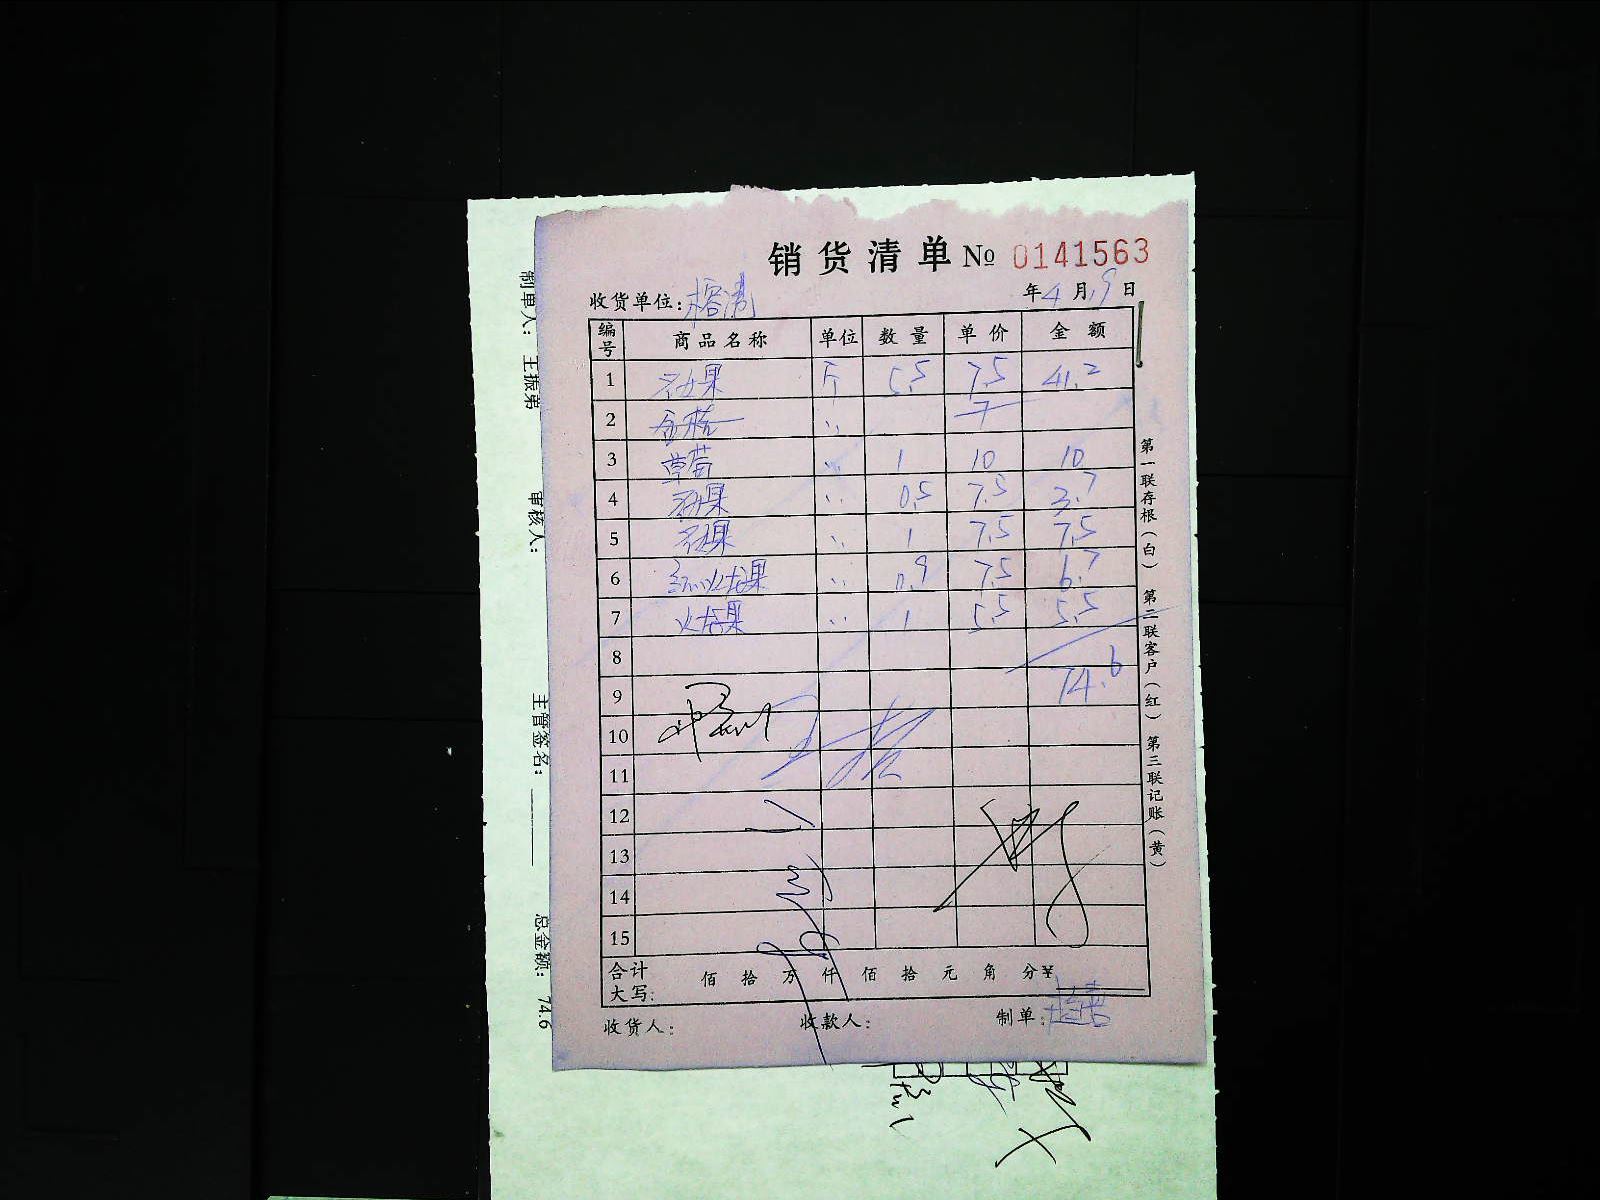 销货清单 № 0141563
收货单位: 年 4 月 9 日
编号 商品名称 单位 数量 单价 金额
1 圣女果 斤 5.5 7.5 41.2
2 金桔 〃 7
3 草莓 〃 1 10 10
4 〃 0.5 7.5 3.7
5 〃 1 7.5 7.5
6 红火龙果 〃 0.9 7.5 6.7
7 火龙果 〃 1 5.5 5.5
8
9 74.6
10
11
12
13
14
15
合计大写: 佰 拾 万 仟 佰 拾 元 角 分¥
收货人: 收款人: 制单:
第一联存根(白) 第二联客户(红) 第三联记账(黄)
制单人: 王振第 审核人: 主管签名: 总金额: 74.6